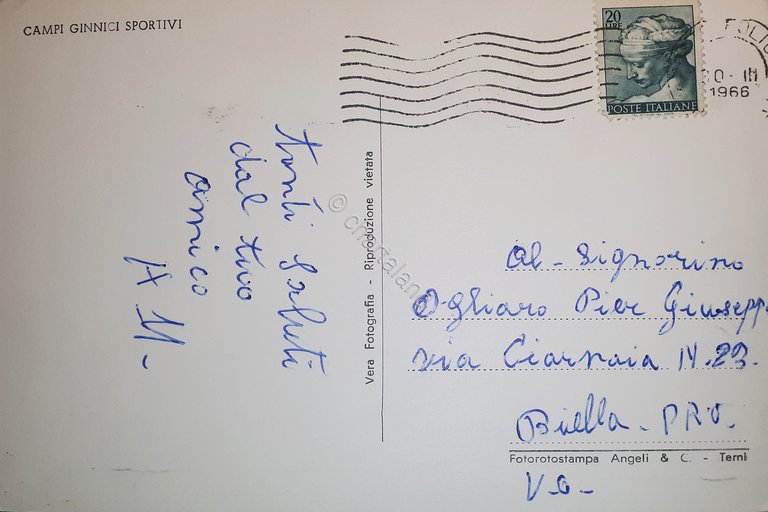 CAMPI GINNICI SPORTIVI
20
LIRE
POSTE ITALIANE
30-III
1966
tanti saluti
dal tuo
amico
Vera Fotografia - Riproduzione vietata
Al - Signorino
Ogliaro Pier Giusepp.
via Ciarnaia N. 23.
Biella - PRO.
Fotorotostampa Angeli & C. - Terni
V-a-